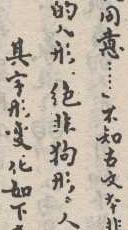 同意……不知古文本非
的人形．絕非狗形．人
其字形变化如下